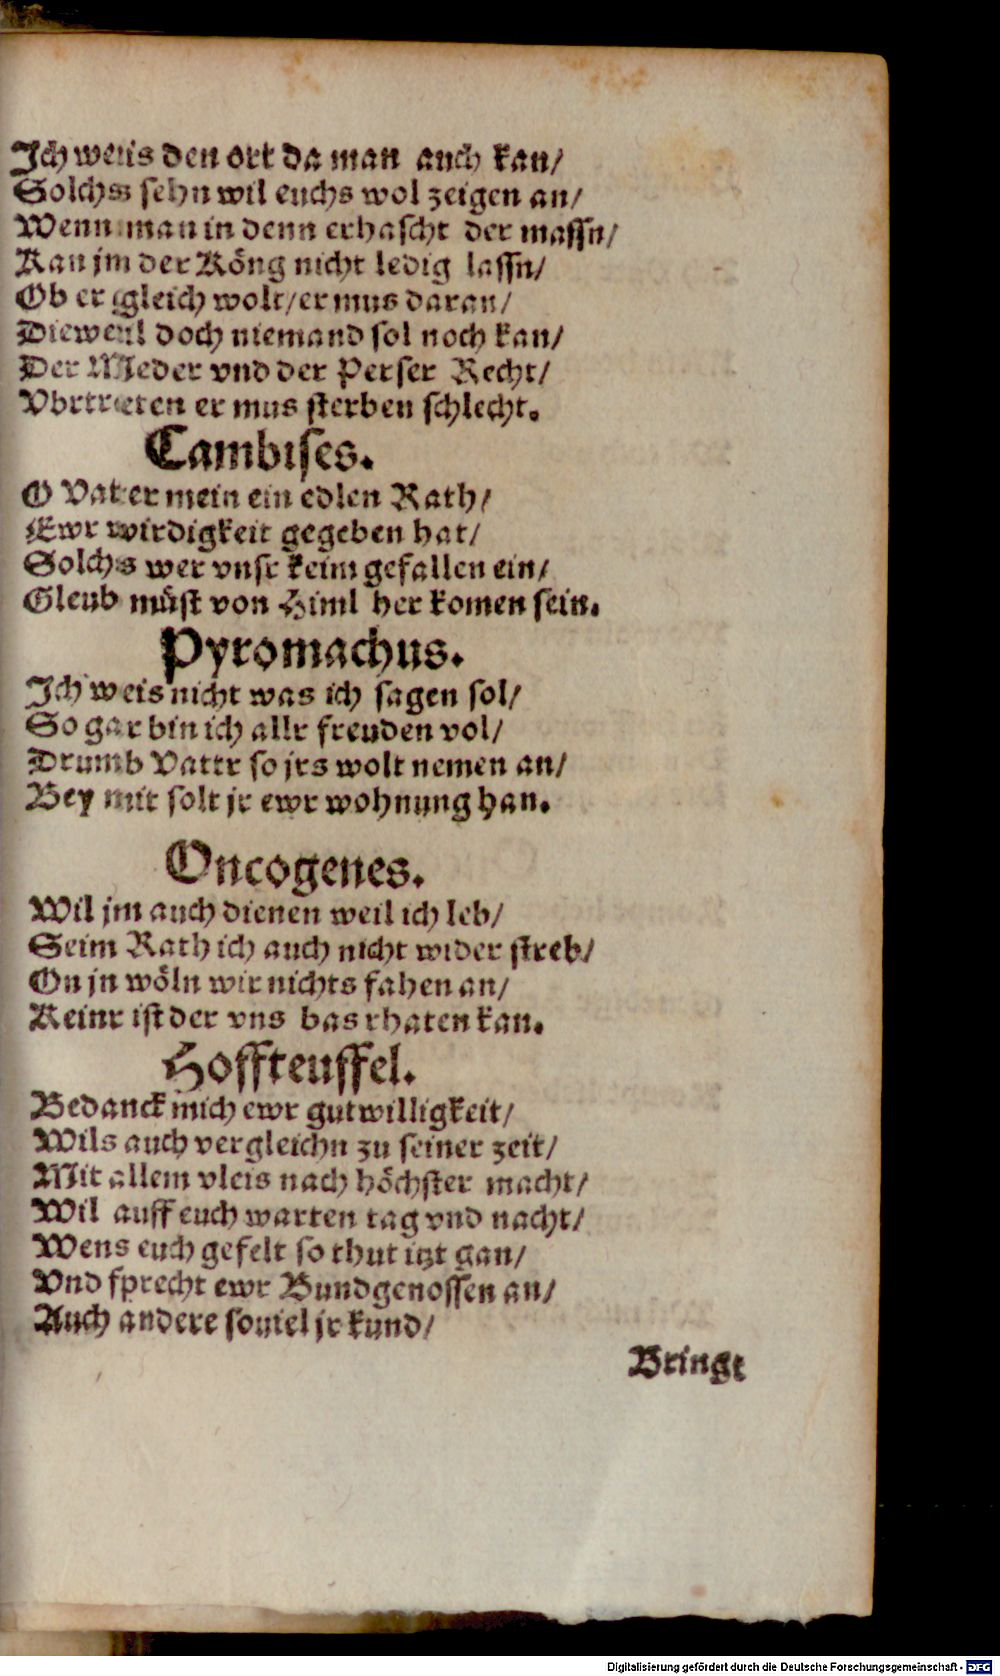 Ich weis den ort da man auch kan/
Solchs sehn wil euchs wol zeigen an/
Wenn man in denn erhascht der massn/
Kan jm der Köng nicht ledig lassn/
Ob er gleich wolt/er mus daran/
Dieweil doch niemand sol noch kan/
Der Meder vnd der Perser Recht/
Vbrtreten er mus sterben schlecht.
Cambises.
O Vatter mein ein edlen Rath/
Ewr wirdigkeit gegeben hat/
Solchs wer vnsr keim gefallen ein/
Gleub müst von Himl her komen sein.
Pyromachus.
Ich weis nicht was ich sagen sol/
So gar bin ich allr freuden vol/
Drumb Vattr so jrs wolt nemen an/
Bey mir solt jr ewr wohnung han.
Oncogenes.
Wil jm auch dienen weil ich leb/
Seim Rath ich auch nicht wider streb/
On jn wöln wir nichts fahen an/
Keinr ist der vns bas rhaten kan.
Hoffteuffel.
Bedanck mich ewr gutwilligkeit/
Wils auch vergleichn zu seiner zeit/
Mit allem vleis nach höchster macht/
Wil auff euch warten tag vnd nacht/
Wens euch gefelt so thut itzt gan/
Vnd sprecht ewr Bundgenossen an/
Auch andere souiel jr kund/
Bringt
Digitalisierung gefördert durch die Deutsche Forschungsgemeinschaft - DFG